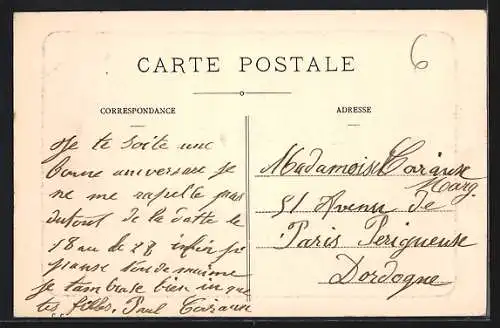 6
CARTE POSTALE
CORRESPONDANCE
ADRESSE
Je te soite une
bonne aniversare je
ne me rapelle pas
dutout de la datte le
18 au de 28 je
panse tou de maime
je tambrase bien in que
tes filles. Paul
Madamoisel
Marg.
51 Avenu de
Paris Perigueuse
Dordogne